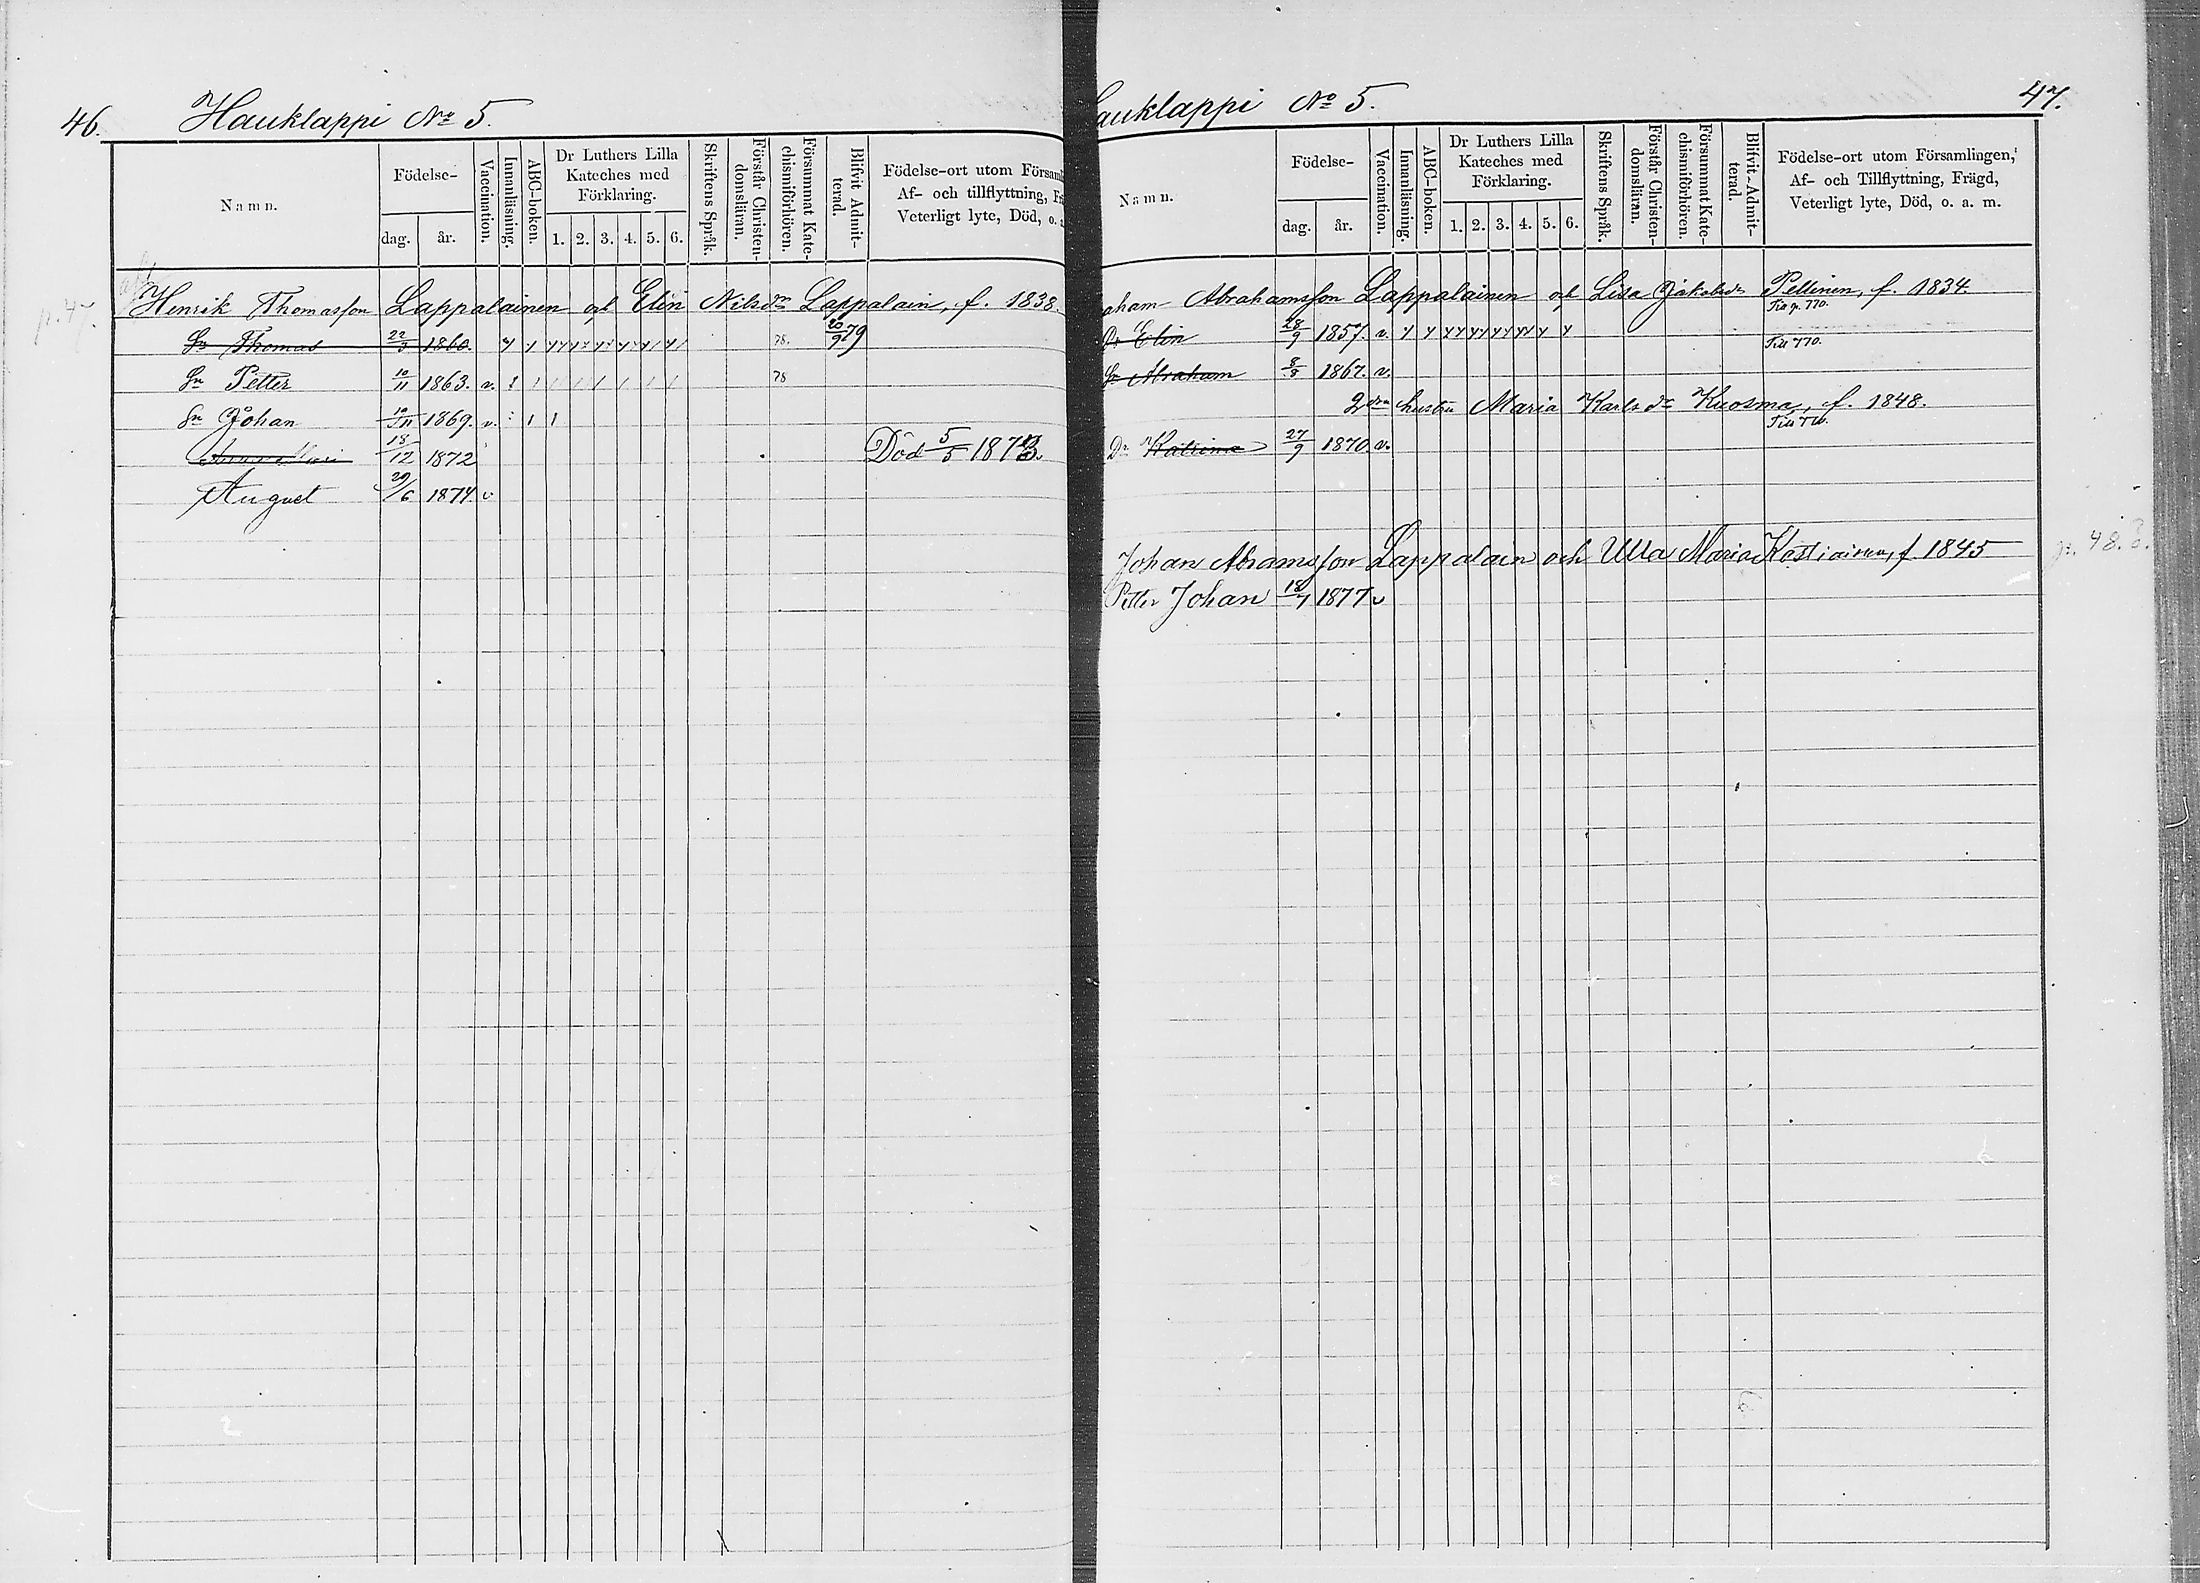 46.
Hauklappi No 5.
Namn.
Födelse-
dag.
år.
Vaccination.
Innanläsning.
ABC-boken.
Dr Luthers Lilla
Kateches med
Förklaring.
1. 2. 3. 4. 5. 6.
Skriftens Språk.
Förstår Christen-
domsläran.
Försummat Kate-
chismiförhören.
Blifvit Admit-
terad.
Födelse-ort utom Försam
Af- och tillflyttning,
Veterligt lyte, Död, o.
p. 47.
Henrik Thomasson Lappalainen och Elin Nilsdr Lappalain, f. 1838.
Sn Thomas 22/3 1860. 78. 20/9 79
Sn Petter 10/11 1863. v. 78
Sn Johan 10/11 1869. v.
18/12 1872 Död 5/5 1873.
August 29/6 1874 v
auklappi No 5.
47.
Namn.
Födelse-
dag.
år.
Vaccination.
Innanläsning.
ABC-boken.
Dr Luthers Lilla
Kateches med
Förklaring.
1. 2. 3. 4. 5. 6.
Skriftens Språk.
Förstår Christen-
domsläran.
Försummat Kate-
chismiförhören.
Blifvit Admit-
terad.
Födelse-ort utom Församlingen,
Af- och Tillflyttning, Frägd,
Veterligt lyte, Död, o. a. m.
aham Abrahamsson Lappalainen och Lisa Jakobsdr Pellinen, f. 1834.
770.
Dr Elin 28/9 1857. v. Till 770.
Sn Abraham 8/8 1867. v.
2dra hustru Maria Karlsdr Kuosma, f. 1848.
Till 770.
Dr Katrina 27/9 1870. v.
Johan Abramsson Lappalain och Ulla Maria Kostiainen, f. 1845
p. 48.
Petter Johan 18/7 1877 v